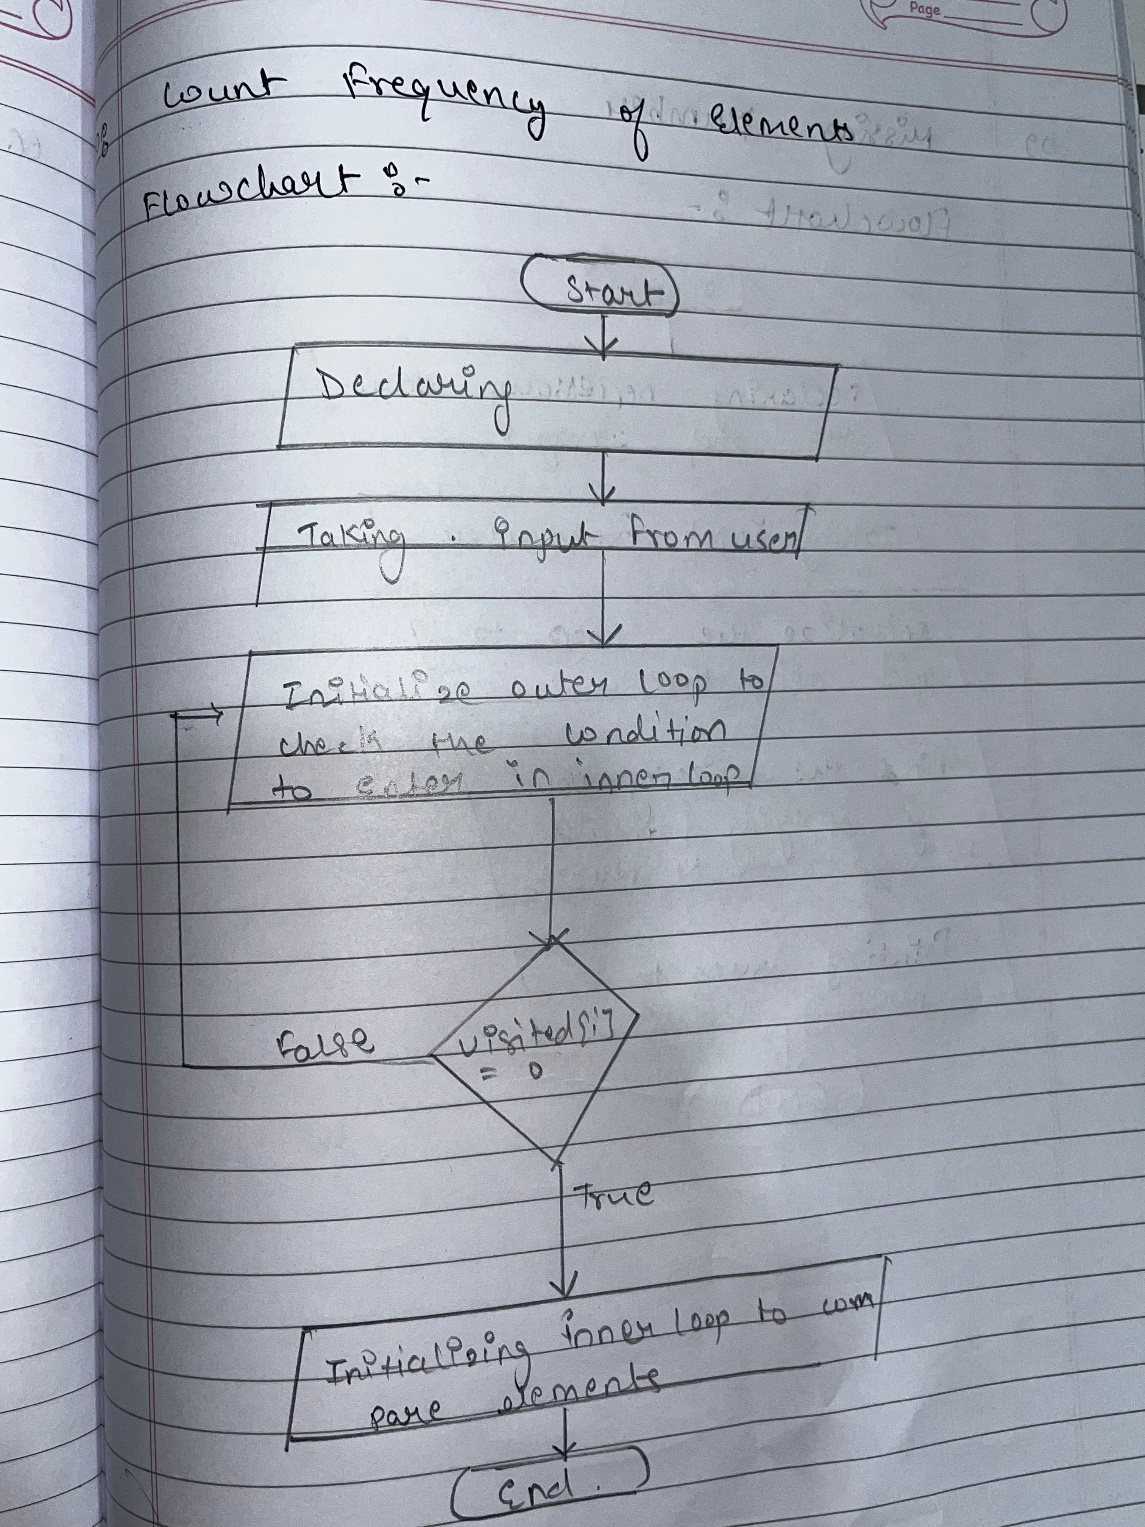 Page
Count Frequency of Elements
Flowchart :-
Start
Declaring
Taking . input from user
Initialize outer loop to
check the condition
to enter in inner loop
False
visited[i]
= 0
True
Initialising inner loop to com
pare elements
End.